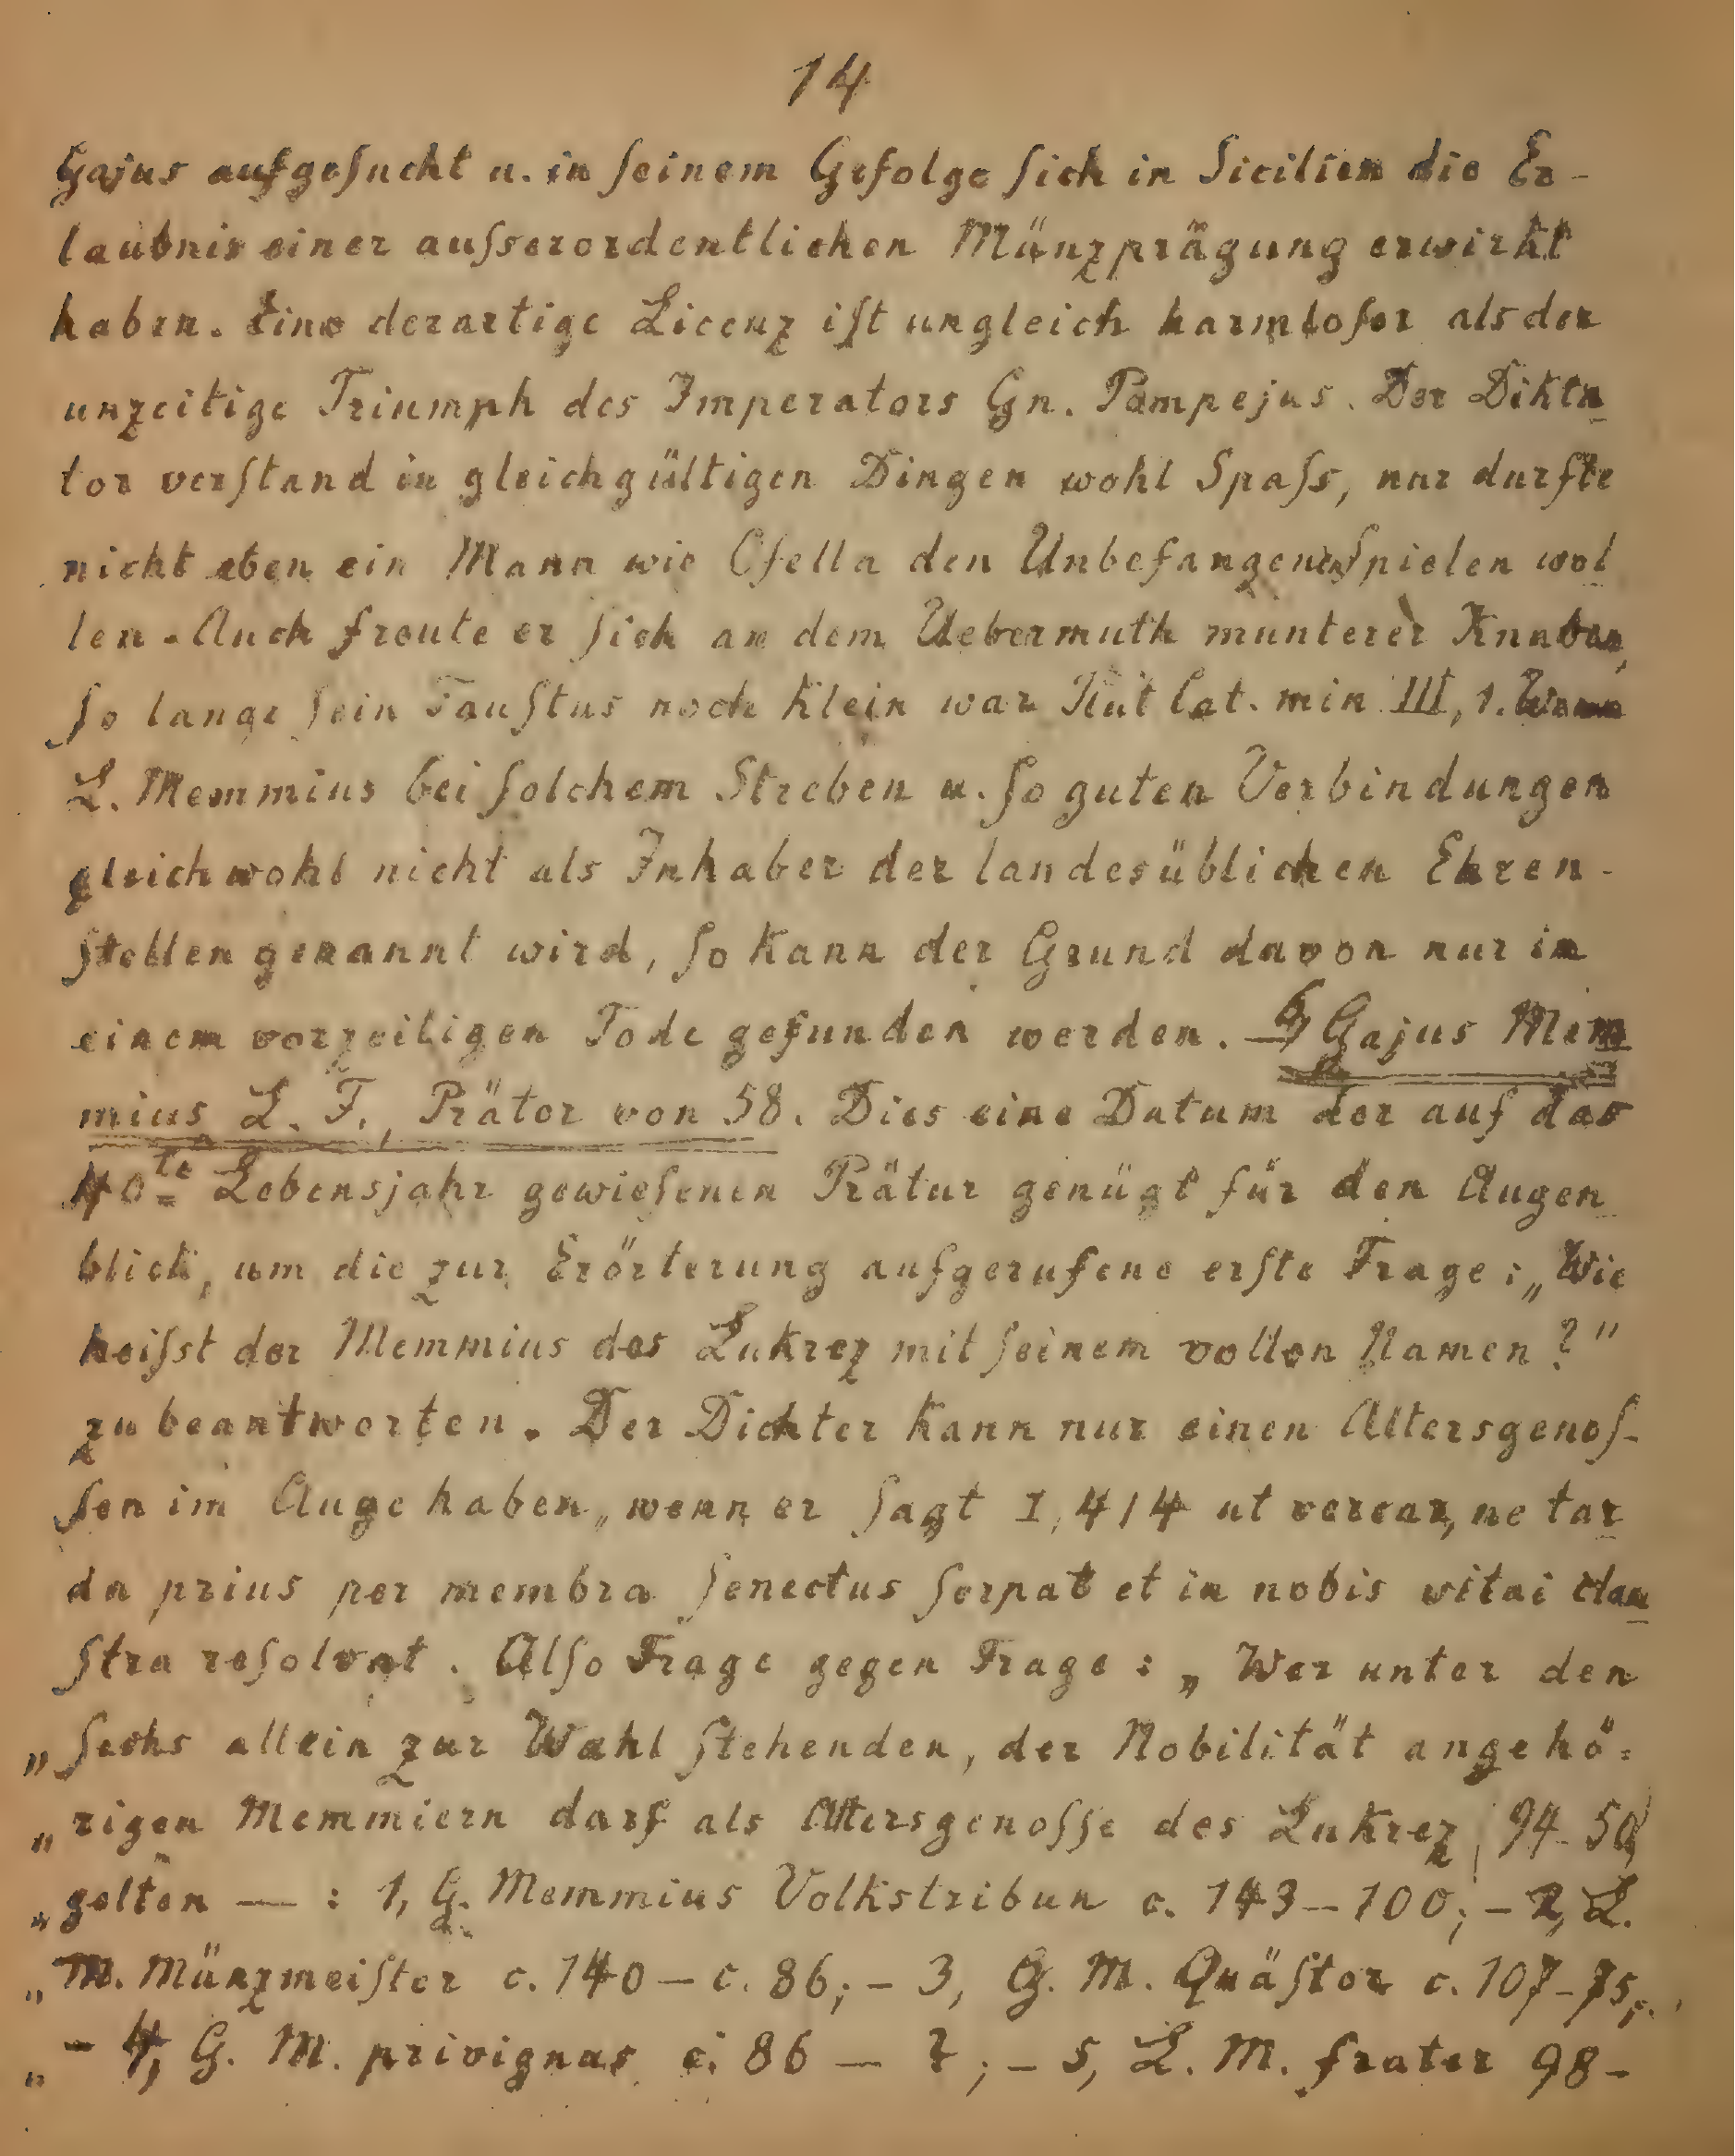 14
Gajus aufgeſucht u. in ſeinem Gefolge ſich in Sicilien die Er-
laubnis einer auſserordentlichen Münzprägung erwirkt
haben. Eine derartige Licenz iſt ungleich harmloſer als der
unzeitige Triumph des Imperators Gn. Pompejus. Der Dikta
tor verſtand in gleichgültigen Dingen wohl Spaſs, nur durfte
nicht eben ein Mann wie Ofella den Unbefangenen ſpielen wol
len. Auch freute er ſich an dem Uebermuth munterer Knaben,
ſo lange ſein Fauſtus noch klein war Plut Cat. min III, 1. Wenn
L. Memmius bei ſolchem Streben u. ſo guten Verbindungen
gleichwohl nicht als Inhaber der landesüblichen Ehren-
ſtellen genannt wird, ſo kann der Grund davon nur in
einem vorzeitigen Tode gefunden werden. 6, Gajus Mem
mius L. F., Prätor von 58. Dies eine Datum der auf das
40te Lebensjahr gewieſenen Prätur genügt für den Augen
blick, um die zur Erörterung aufgerufene erſte Frage: „Wie
heiſst der Memmius des Lukrez mit ſeinem vollen Namen?"
zu beantworten. Der Dichter kann nur einen Altersgenoſ-
ſen im Auge haben, wenn er ſagt I, 414 ut verear, ne tar
da prius per membra ſenectus ſerpat et in nobis vitai clau
ſtra reſolvat. Alſo Frage gegen Frage: „Wer unter den
„ſechs allein zur Wahl ſtehenden, der Nobilität angehö=
„rigen Memmiern darf als Altersgenoſſe des Lukrez, 94-50,
„gelten — : 1, G. Memmius Volkstribun c. 143–100; – 2, L.
„M. Münzmeiſter c. 140 – c. 86; – 3, G. M. Quäſtor c. 107-75;
„– 4, G. M. privignus c. 86 – ?; – 5, L. M. frater 98-